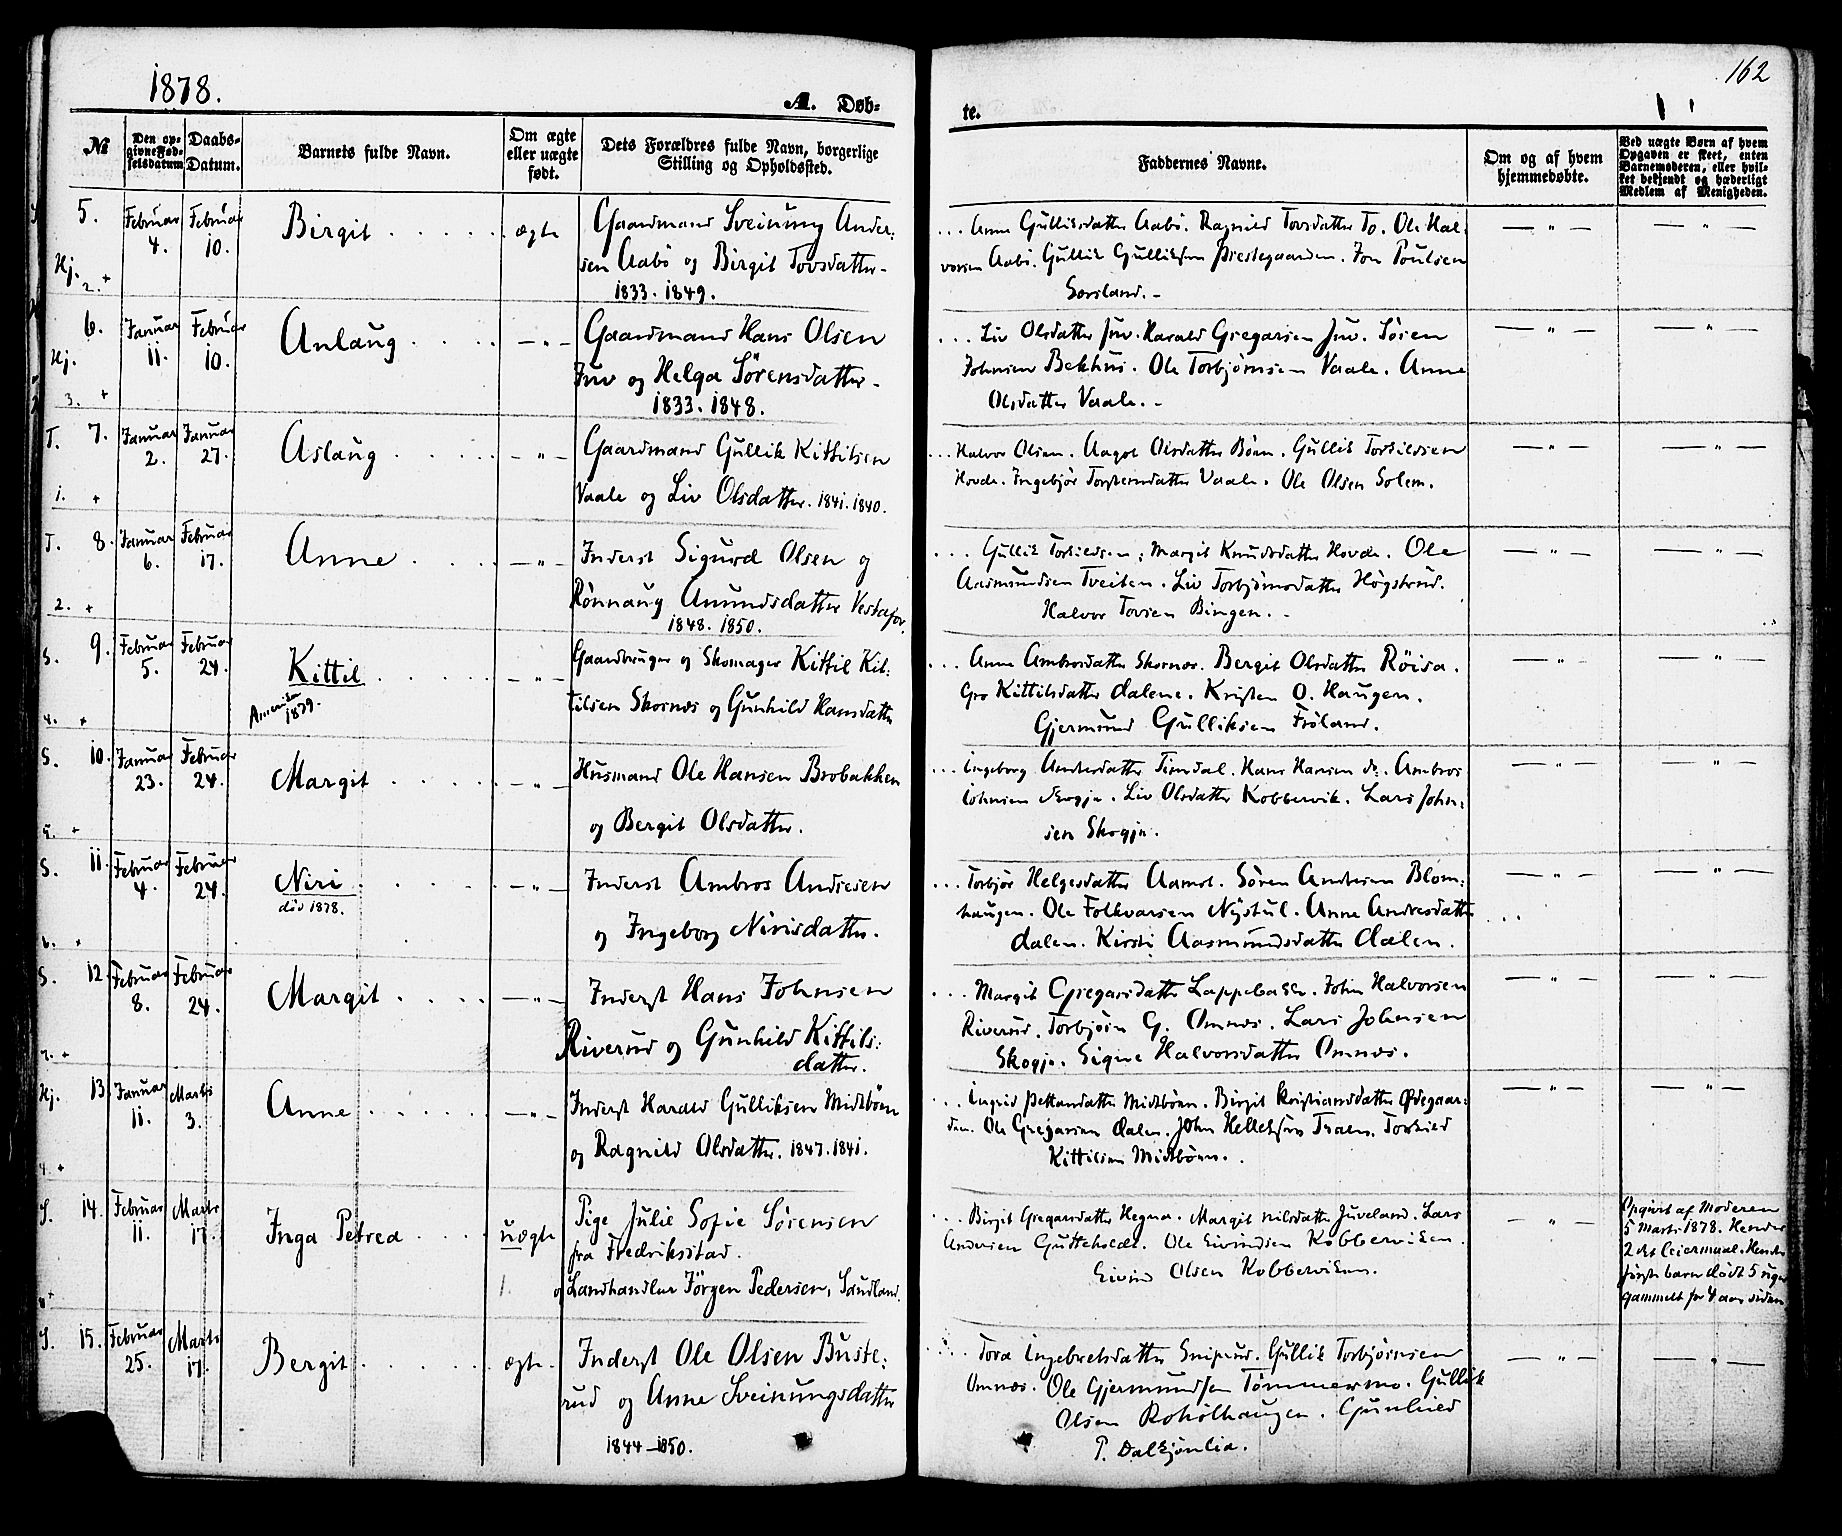 1878.
162
A. Døb-
te.
Nr
Den op-
givne Fød-
selsdatum
Daabs-
Datum.
Barnets fulde Navn.
Om ægte
eller uægte
født.
Dets Forældres fulde Navn, borgerlige
Stilling og Opholdssted.
Faddernes Navne.
Om og af hvem
hjemmedøbte.
Ved uægte Børn af hvem
Opgaven er skeet, enten
Barnemoderen, eller hvil-
ket bekjendt og hæderligt
Medlem af Menigheden.
5.
Hj.
2. +
Februar
4.
Februar
10.
Birgit
ægte
Gaardmand Sveinung Ander-
sen Aabø og Birgit Tovsdatter -
1833. 1849.
Anne Gulliksdatter Aabø. Ragnild Tovsdatter To. Ole Hal-
vorsen Aabø. Gullik Gulliksen Præstegaarden. Jon Poulsen
Sørsland. -
— " —
— " —
6.
Hj.
3. +
Januar
11.
Februar
10.
Anlaug
— " —
Gaardmand Hans Olsen
Juv og Helga Sørensdatter -
1833. 1848.
Liv Olsdatter Juv. Harald Gregarsen Juv. Søren
Johnsen Bekhus. Ole Torbjørnsen Vaale. Anne
Olsdatter Vaale. -
— " —
— " —
T. 7.
1. +
Januar
2.
Januar
27.
Aslaug
— " —
Gaardmand Gullik Kittilsen
Vaale og Liv Olsdatter. 1841. 1840.
Halvor Olsen. Aagot Olsdatter Bøen. Gullik Torkildsen
Hovde. Ingebjør Torstensdatter Vaale. Ole Olsen Solem.
— " —
— " —
T. 8.
2. +
Januar
6.
Februar
17.
Anne
— " —
Inderst Sigurd Olsen og
Rønnaug Anundsdatter
1848. 1850.
Gullik Torkildsen, Margit Knudsdatter Hovde. Ole
Aasmundsen Tveiten. Liv Torbjørnsdatter Høgstrud.
Halvor Tovsen Bingen. -
— " —
— " —
S. 9.
4. +
Februar
5.
Februar
24.
Kittil
Amerika
1879.
— " —
Gaardbruger og Skomager Kittil Kit-
tilsen Skornæs og Gunhild Hansdatter
Anne Ambrosdatter Skornæs. Bergit Olsdatter Røisa.
Gro Kittilsdatter Dalene. Kristen O. Haugen.
Gjermund Gulliksen Frøland.
— " —
— " —
S. 10.
5. +
Januar
23.
Februar
24.
Margit
— " —
Husmand Ole Hansen Brobakken
og Bergit Olsdatter.
Ingeborg Andersdatter Tinndal. Hans Hansen do. Ambros
Johnsen Skogje. Liv Olsdatter Kobbervik. Lars John-
sen Skogje.
— " —
— " —
S. 11.
6. +
Februar
4.
Februar
24.
Niri
død 1878.
— " —
Inderst Ambros Andresen
og Ingeborg Nirisdatter.
Torbjør Helgesdatter Aamot. Søren Andresen Blom-
haugen. Ole Folkvarsen Nystul. Anne Andresdatter
Dalen. Kirsti Aasmundsdatter Dalen.
— " —
— " —
S. 12
7. +
Februar
8.
Februar
24.
Margit
— " —
Inderst Hans Johnsen
Riverud og Gunhild Kittils-
datter.
Margit Gregarsdatter Lappebakk. John Halvorsen
Riverud. Torbjørn G. Omnæs. Lars Johnsen
Skogje. Signe Halvorsdatter Omnæs.
— " —
— " —
Hj. 13.
4. +
Januar
11.
Marts
3.
Anne
— " —
Inderst Harald Gulliksen Midtbøen
og Ragnild Olsdatter. 1847. 1841.
Ingrid Pettersdatter Midtbøen. Birgit Kristiansdatter Ødegaar-
den. Ole Gregarsen Dalen. John Helleksen Traen. Torkild
Kittilsen Midtbøen.
— " —
— " —
S. 14.
8 +
Februar
11.
Marts
17.
Inga Petrea
uægte
1.
Pige Julie Sofie Sørensen
fra Fredriksstad.
og Landhandler Jørgen Pedersen, Saudland.
Birgit Gregarsdatter Hegna. Margit Nilsdatter Juveland. Lars
Andersen Gutteholdt. Ole Eivindsen Kobberviken.
Eivind Olsen Kobberviken.
— " —
Opgivet af Moderen
5 Marts 1878. Hendes
2det Leiermaal. Hendes
første barn dødt 5 uger
gammelt for 4 aar siden
S. 15.
Februar
25.
Marts
17.
Bergit
ægte.
Inderst Ole Olsen Buste-
rud og Anne Sveinungsdatter
1844-1850.
Tora Ingebretsdatter Sniprud. Gullik Torbjørnsen
Omnæs. Ole Gjermundsen Tømmermo. Gullik
Olsen Roholthaugen. Gunhild
P. Dalsjønlia.
— " —
— " —